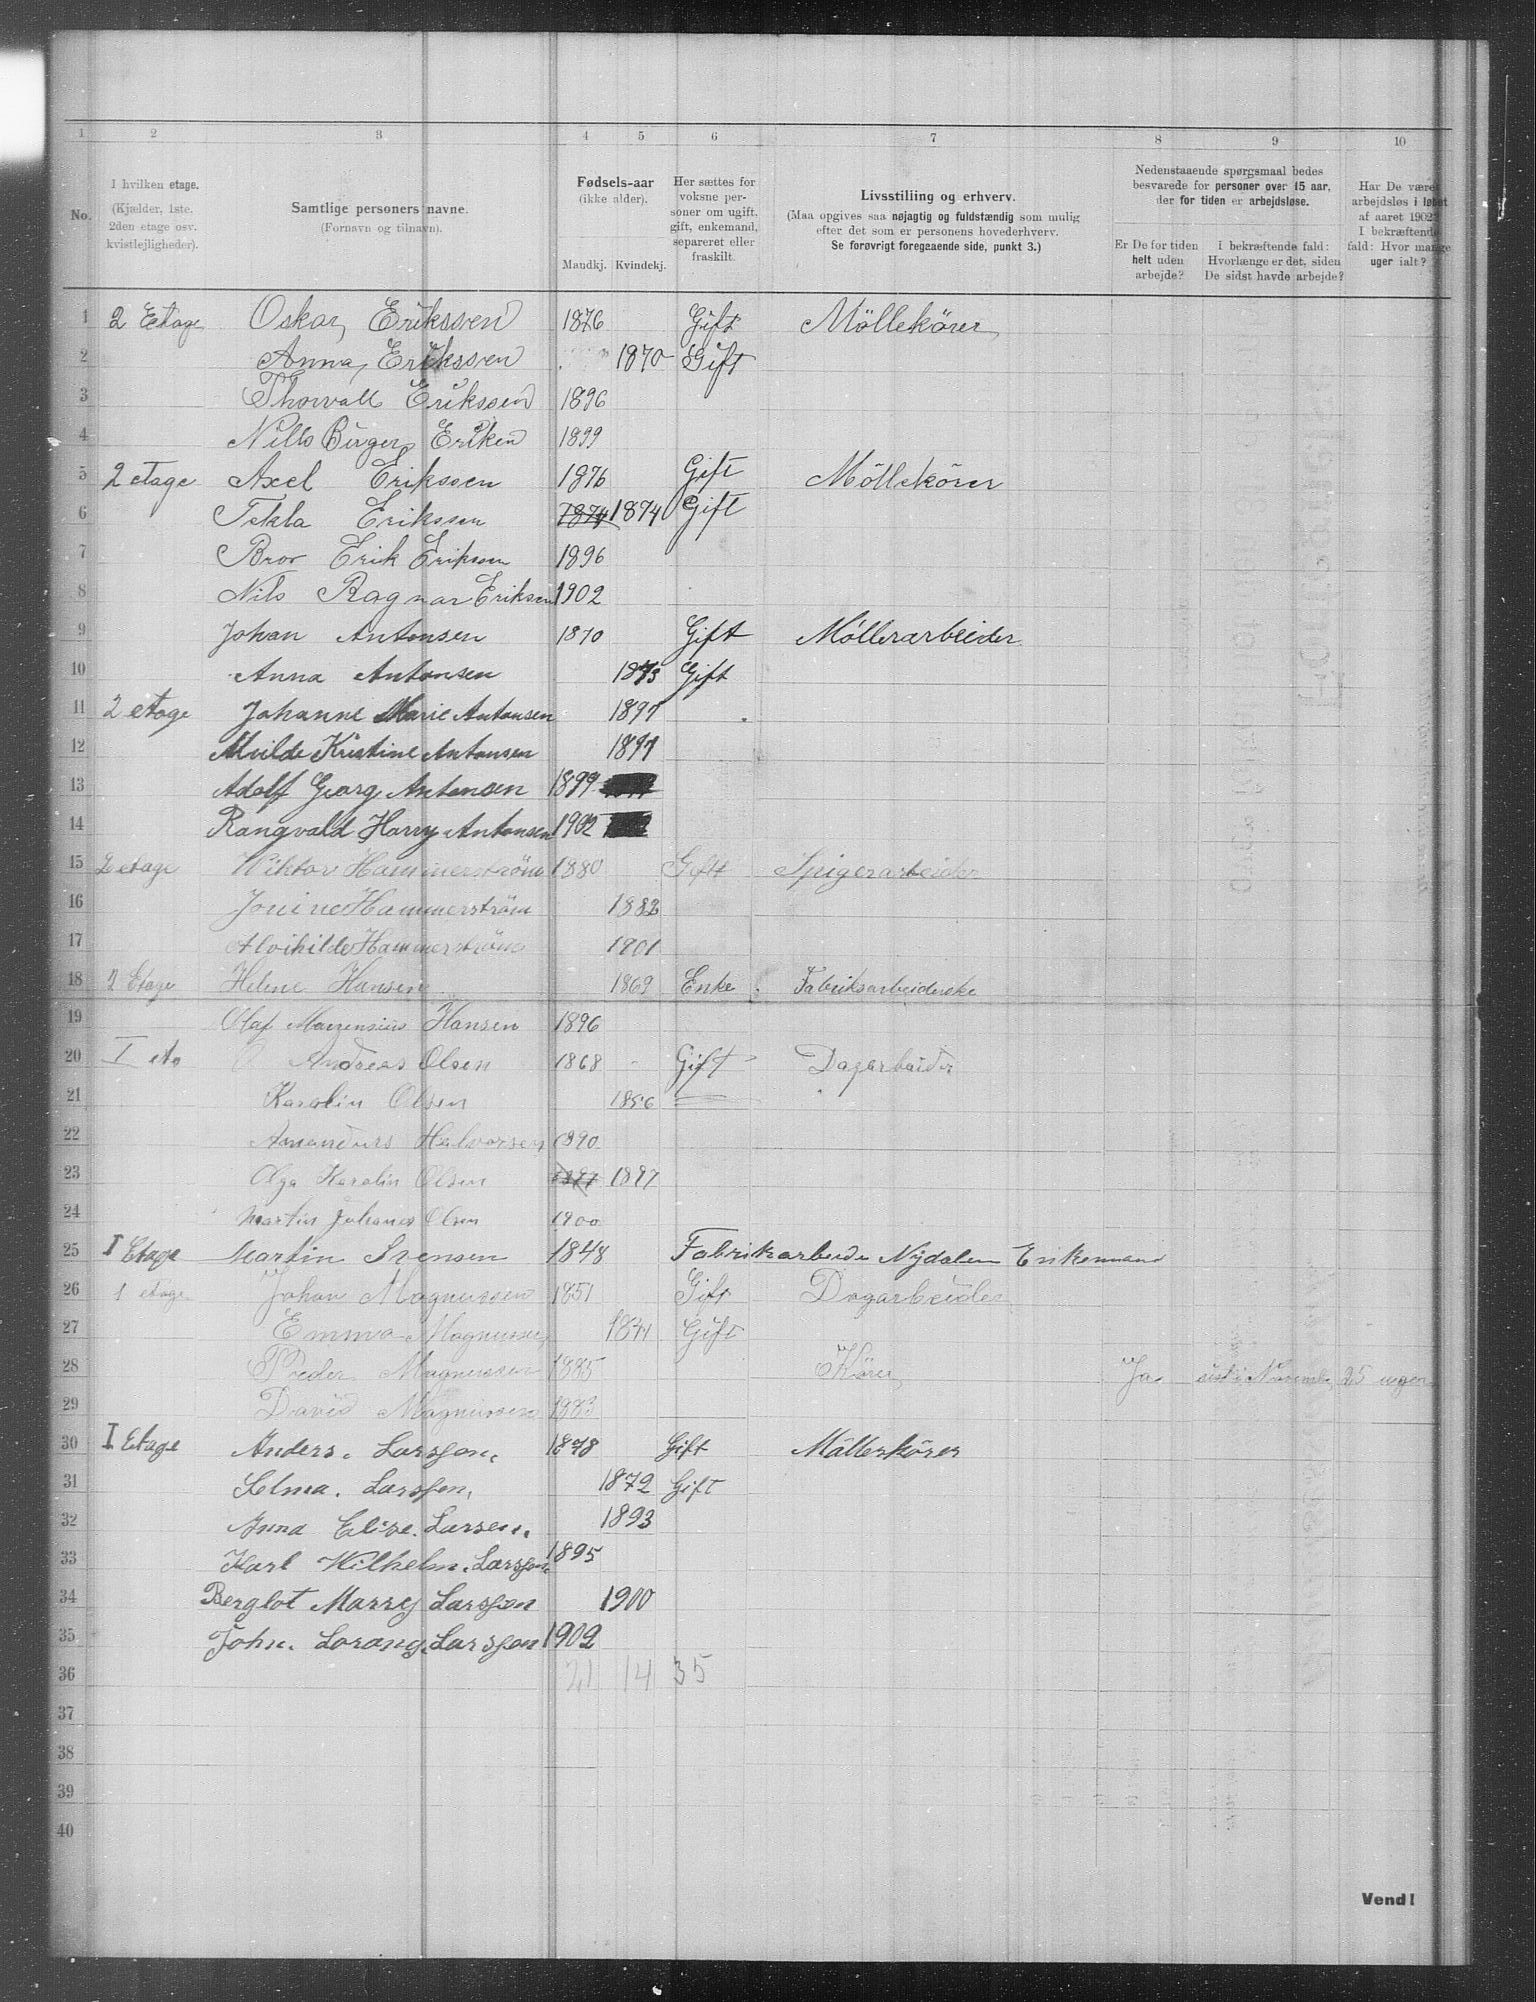 1 2 3 4 5 6 7 8 9 10
No.
I hvilken etage.
(Kjælder, 1ste.
2den etage osv.
kvistlejligheder).
Samtlige personers navne.
(Fornavn og tilnavn).
Fødsels-aar
(ikke alder).
Mandkj. Kvindekj.
Her sættes for
voksne per-
soner om ugift,
gift, enkemand,
separeret eller
fraskilt.
Livsstilling og erhverv.
(Maa opgives saa nøjagtig og fuldstændig som mulig
efter det som er personens hovederhverv.
Se forøvrigt foregaaende side, punkt 3.)
Nedenstaaende spørgsmaal bedes
besvarede for personer over 15 aar,
der for tiden er arbejdsløse.
Er De for tiden
helt uden
arbejde?
I bekræftende fald:
Hvorlænge er det, siden
De sidst havde arbejde?
Har De været
arbejdsløs i løbet
af aaret 1902?
I bekræftende
fald: Hvor mange
uger ialt?
1 2 Etage Oskar Erikssen 1876 Gift Möllekörer
2 Anna Erikssen 1870 Gift
3 Thorvall Erikssen 1896
4 Nills Birger Eriken 1899
5 2 etage Axel Erikssen 1876 Gift Möllekörer
6 Tekla Erikssen 1874 1874 Gift
7 Bror Erik Eriksen 1896
8 Nils Ragnar Eriksen 1902
9 Johan Antonsen 1870 Gift Møllerarbeider
10 Anna Antonsen 1873 Gift
11 2 etage Johanne Marie Antonsen 1897
12 Kristine Antonsen 1897
13 Adolf Georg Antonsen 1899
14 Rangvald Harry Antonsen 1902
15 2 etage Wiktor Hammerström 1880 Gift Spigerarbeider
16 Jonine Hammerström 1882
17 Alvihilde Hammerström 1901
18 2 Etage Helene Hansen 1869 Enke Fabriksarbeiderske
19 Olaf Hansen 1896
20 I eta Andreas Olsen 1868 Gift Dagarbeider
21 Karolin Olsen 1856
22 Amandus Halvorsen 1890
23 Olga Karolin Olsen 1897 1897
24 Martin Johanes Olsen 1900
25 I Etage Martin Svensen 1848 Fabrikarbeide Nydalen Enkemand
26 1 etage Johan Magnussen 1851 Gift Dagarbeider
27 Emma Magnussen 1841 Gift
28 Peder Magnussen 1885 Körer Ja. 25 uger
29 David Magnussen 1883
30 I Etage Anders. Larsson. 1878 Gift Möllerkörer
31 Selma. Larsson, 1872 Gift
32 Anna Elise. Larsen. 1893
33 Karl Wilhelm. Larsson. 1895
34 Berglot Marry Larsson 1900
35 John. Lorang. Larsson 1902
36 21 14 35
37
38
39
40
Vend!